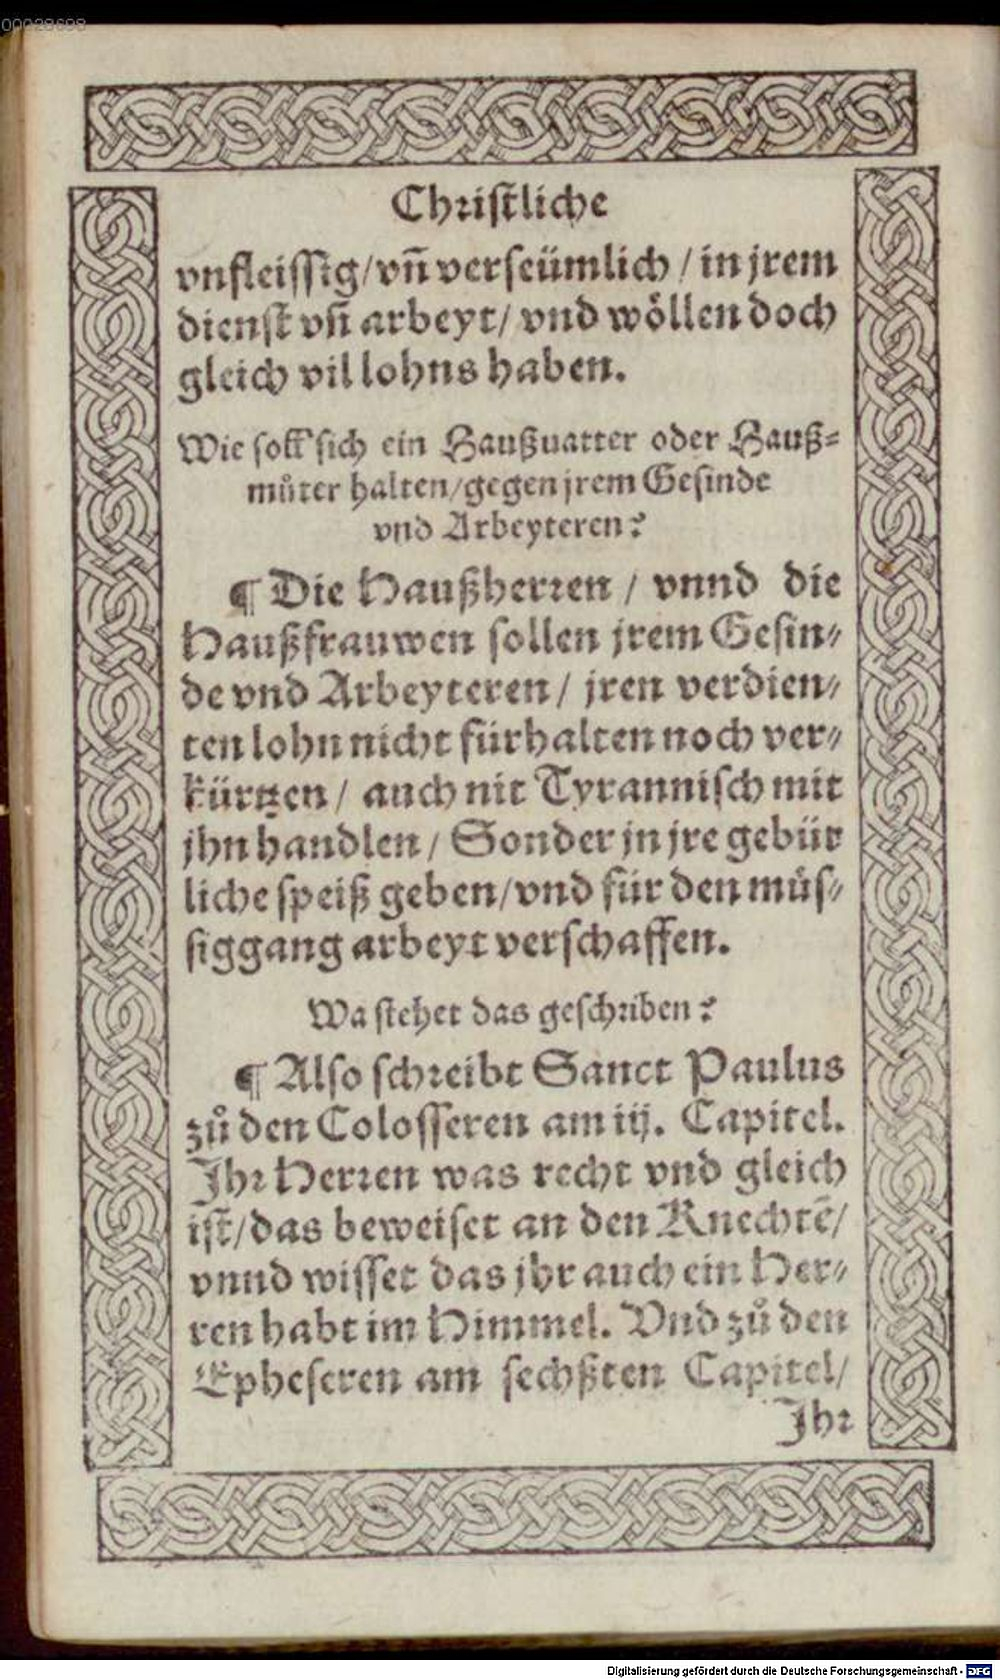 00028698
Christliche
vnfleissig/vn̄ verseümlich / in jrem
dienst vn̄ arbeyt/ vnd wöllen doch
gleich vil lohns haben.
Wie soll sich ein Haußuatter oder Hauß=
můter halten/gegen jrem Gesinde
vnd Arbeyteren?
¶ Die Haußherren / vnnd die
Haußfrauwen sollen jrem Gesin⸗
de vnd Arbeyteren/ jren verdien⸗
ten lohn nicht fürhalten noch ver⸗
kürtzen/ auch nit Tyrannisch mit
jhn handlen/ Sonder jn jre gebür
liche speiß geben/vnd für den müs⸗
siggang arbeyt verschaffen.
Wa stehet das geschriben?
¶ Also schreibt Sanct Paulus
zů den Colosseren am iij. Capitel.
Ihr Herren was recht vnd gleich
ist/das beweiset an den Knechtē/
vnnd wisset das jhr auch ein Her⸗
ren habt im Himmel. Vnd zů den
Epheseren am sechßten Capitel/
Ihr
Digitalisierung gefördert durch die Deutsche Forschungsgemeinschaft - DFG